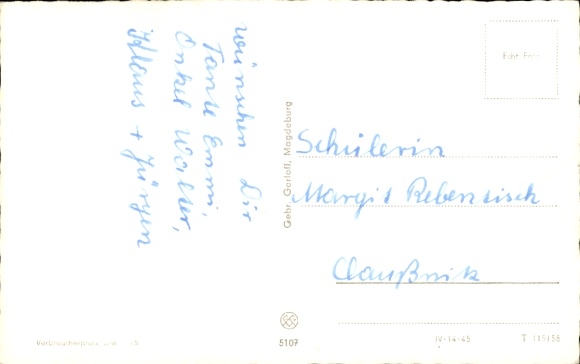 wünschen Dir
Tante Emmi,
Onkel Walter,
Klaus + Jürgen
Gebr. Garloff, Magdeburg
Echt Foto
Schülerin
Margit Rebentisch
Claußnitz
5107
IV-14-45
T 115/58